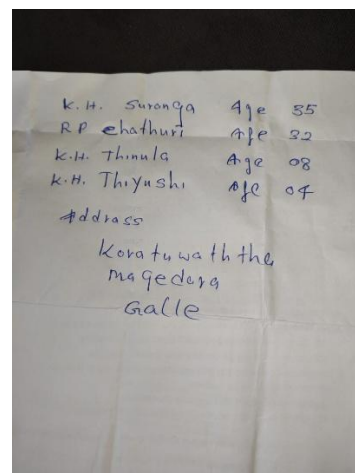 K.H. Suranga Age 35
R P chathuri Age 32
K.H. Thinula Age 08
K.H. Thiyushi Age 04
Addrass
Koratuwaththa
magedara
Galle